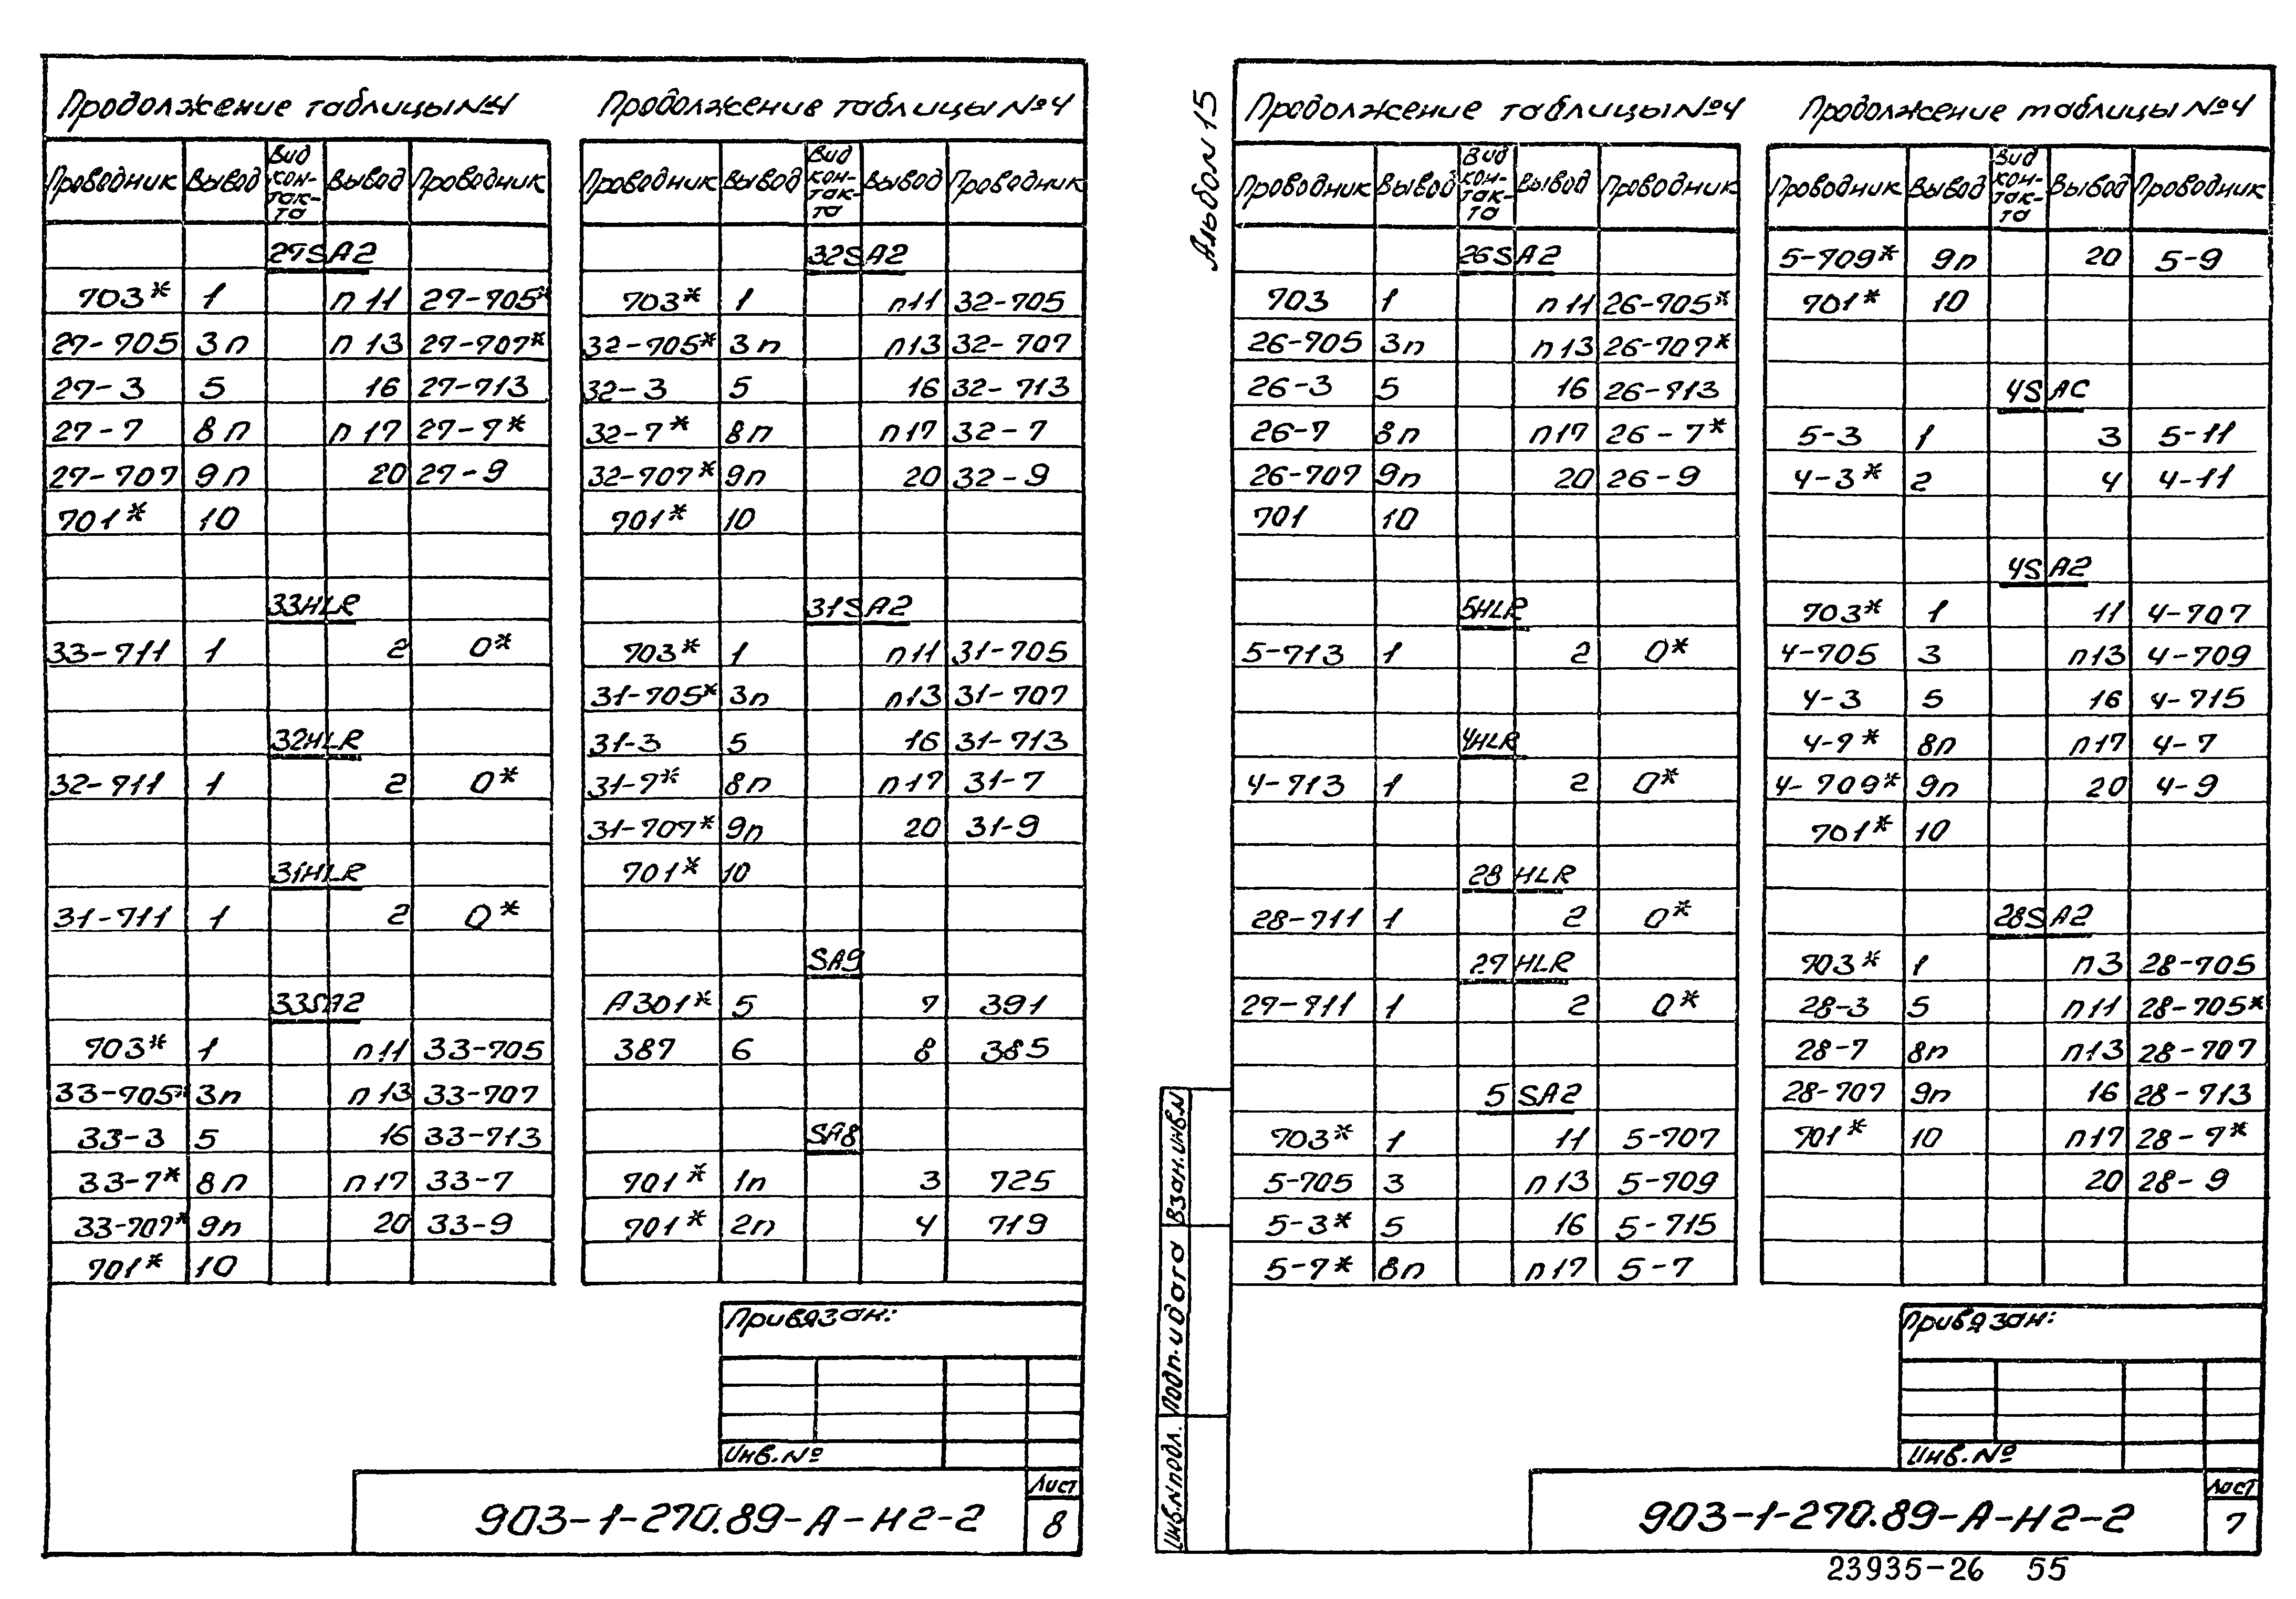 Продолжение таблицы №4
Проводник Вывод Вид кон-так-та Вывод Проводник
27SA2
703* 1 п11 27-705*
27-705 3п п13 27-707*
27-3 5 16 27-713
27-7 8п п17 27-7*
27-707 9п 20 27-9
701* 10
33HLR
33-711 1 2 0*
32HLR
32-711 1 2 0*
31HLR
31-711 1 2 0*
33SA2
703* 1 п11 33-705
33-705* 3п п13 33-707
33-3 5 16 33-713
33-7* 8п п17 33-7
33-707* 9п 20 33-9
701* 10
Продолжение таблицы №4
Проводник Вывод Вид кон-так-та Вывод Проводник
32SA2
703* 1 п11 32-705
32-705* 3п п13 32-707
32-3 5 16 32-713
32-7* 8п п17 32-7
32-707* 9п 20 32-9
701* 10
31SA2
703* 1 п11 31-705
31-705* 3п п13 31-707
31-3 5 16 31-713
31-7* 8п п17 31-7
31-707* 9п 20 31-9
701* 10
SA9
A301* 5 7 391
387 6 8 385
SA8
701* 1п 3 725
701* 2п 4 719
Привязан:
Инв.№
903-1-270.89-А-Н2-2
Лист
8
Альбом 15
Продолжение таблицы №4
Проводник Вывод Вид кон-так-та Вывод Проводник
26SA2
703 1 п11 26-705*
26-705 3п п13 26-707*
26-3 5 16 26-713
26-7 8п п17 26-7*
26-707 9п 20 26-9
701 10
5HLR
5-713 1 2 0*
4HLR
4-713 1 2 0*
28HLR
28-711 1 2 0*
27HLR
27-711 1 2 0*
5SA2
703* 1 11 5-707
5-705 3 п13 5-709
5-3* 5 16 5-715
5-7* 8п п17 5-7
Продолжение таблицы №4
Проводник Вывод Вид кон-так-та Вывод Проводник
5-709* 9п 20 5-9
701* 10
4SAC
5-3 1 3 5-11
4-3* 2 4 4-11
4SA2
703* 1 11 4-707
4-705 3 п13 4-709
4-3 5 16 4-715
4-7* 8п п17 4-7
4-709* 9п 20 4-9
701* 10
28SA2
703* 1 п3 28-705
28-3 5 п11 28-705*
28-7 8п п13 28-707
28-707 9п 16 28-713
701* 10 п17 28-7*
20 28-9
Взан.инв.N
Подп. и дата
Инв.N подл.
Привязан:
Инв.№
903-1-270.89-А-Н2-2
Лист
7
23935-26 55